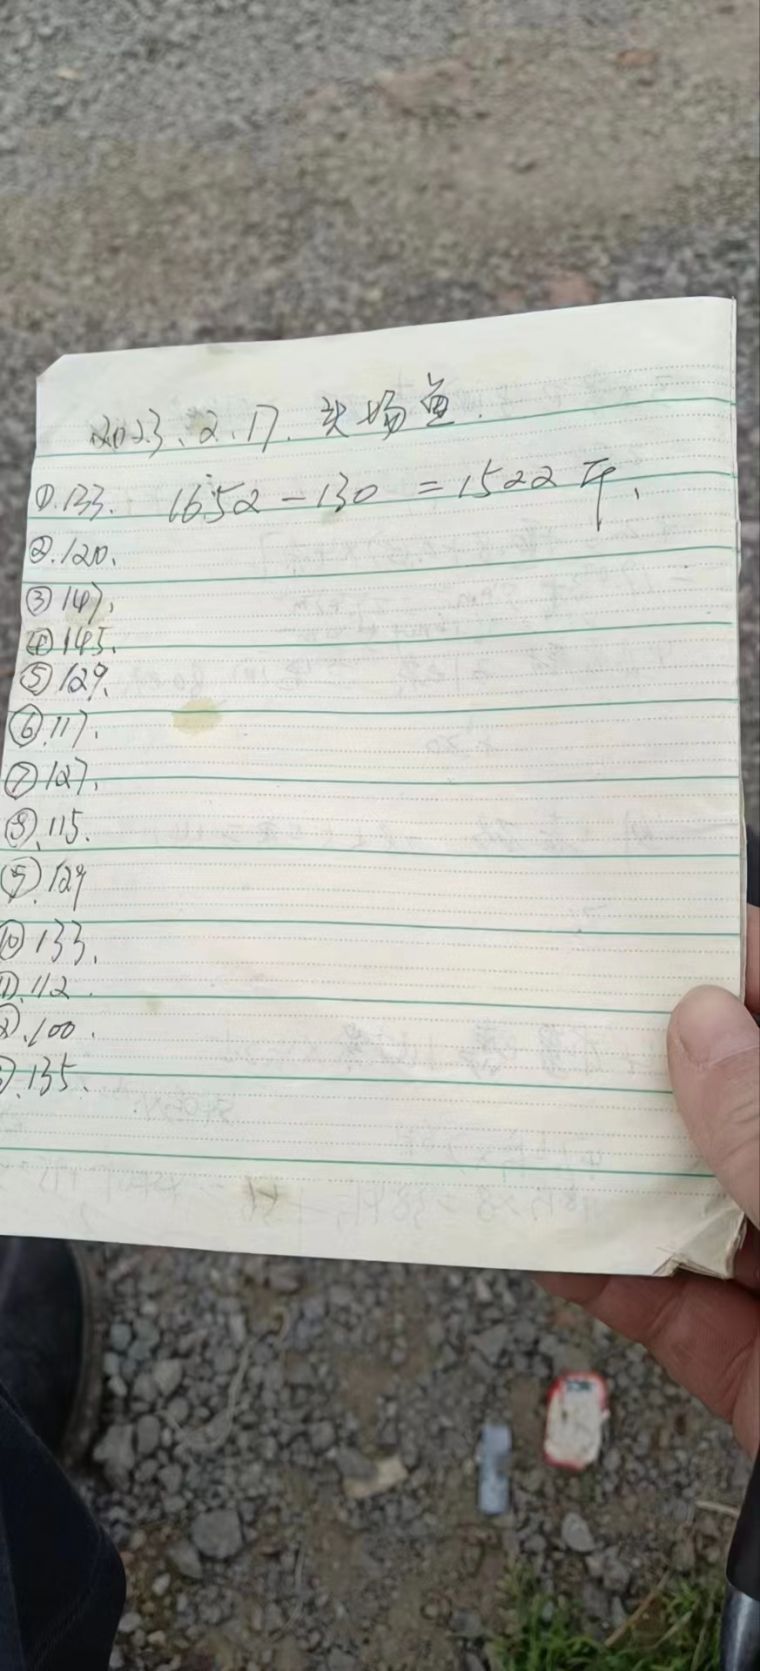 2023、2、17. 场鱼.
①.133. 1652-130=1522斤.
②.120.
③147.
④145.
⑤129.
⑥.117.
⑦127.
⑧.115.
⑨.129
⑩133.
⑪.112.
.100.
.135.